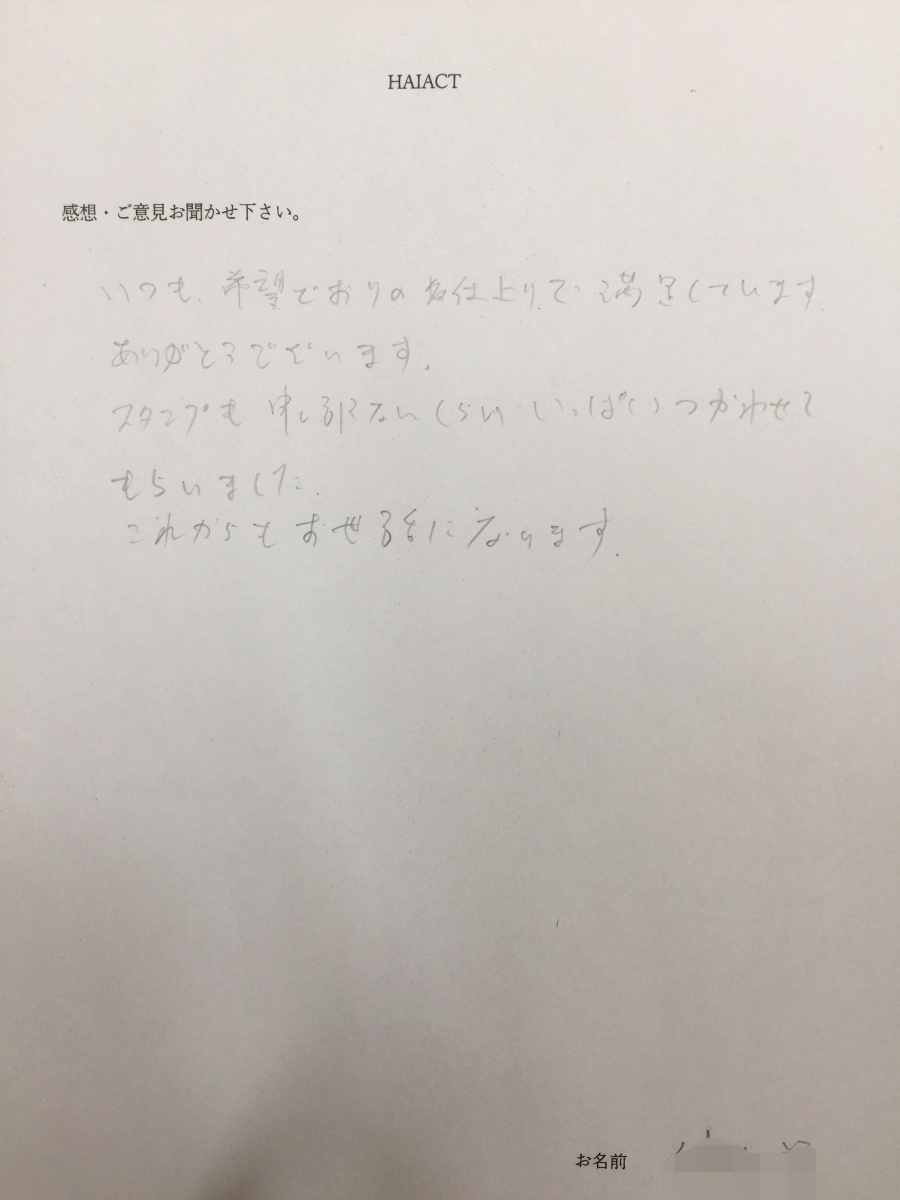 HAIACT
感想・ご意見お聞かせ下さい。
いつも、希望どおりのお仕上りで満足しています
ありがとうございます。
スタンプも申し訳ないくらいいっぱいつかわせて
もらいました。
これからもお世話になります。
お名前